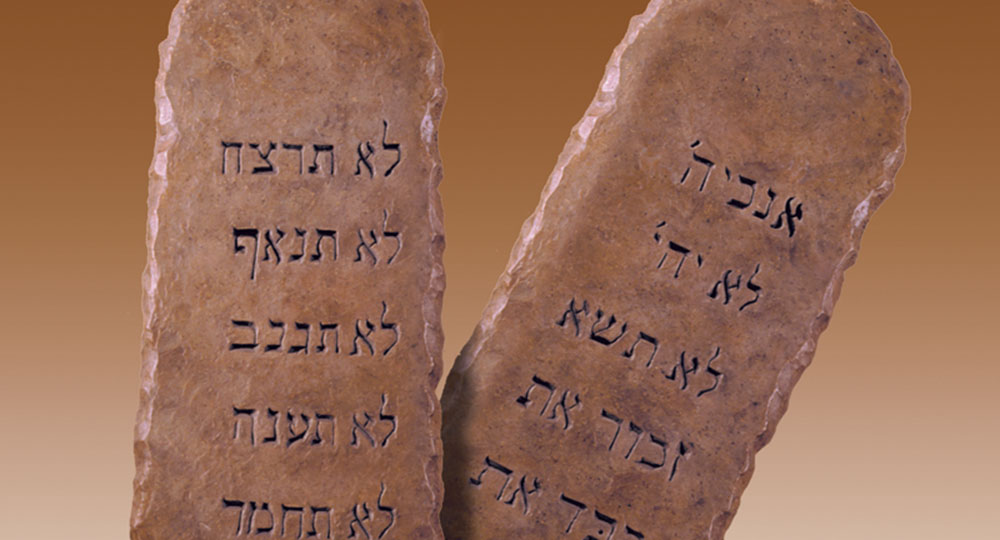 אנכיה׳
לא יה׳
לא תשא
זכור את
כבד את
לא תרצח
לא תנאף
לא תגנב
לא תענה
לא תחמד